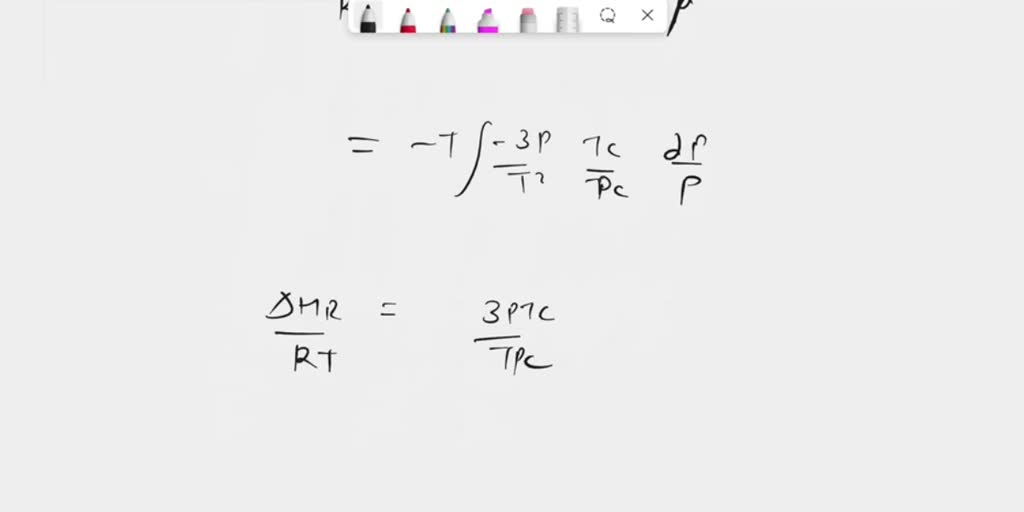 = -T ∫ -3P/T² Tc/Pc dP/P
ΔHR/RT = 3PTC/TPC